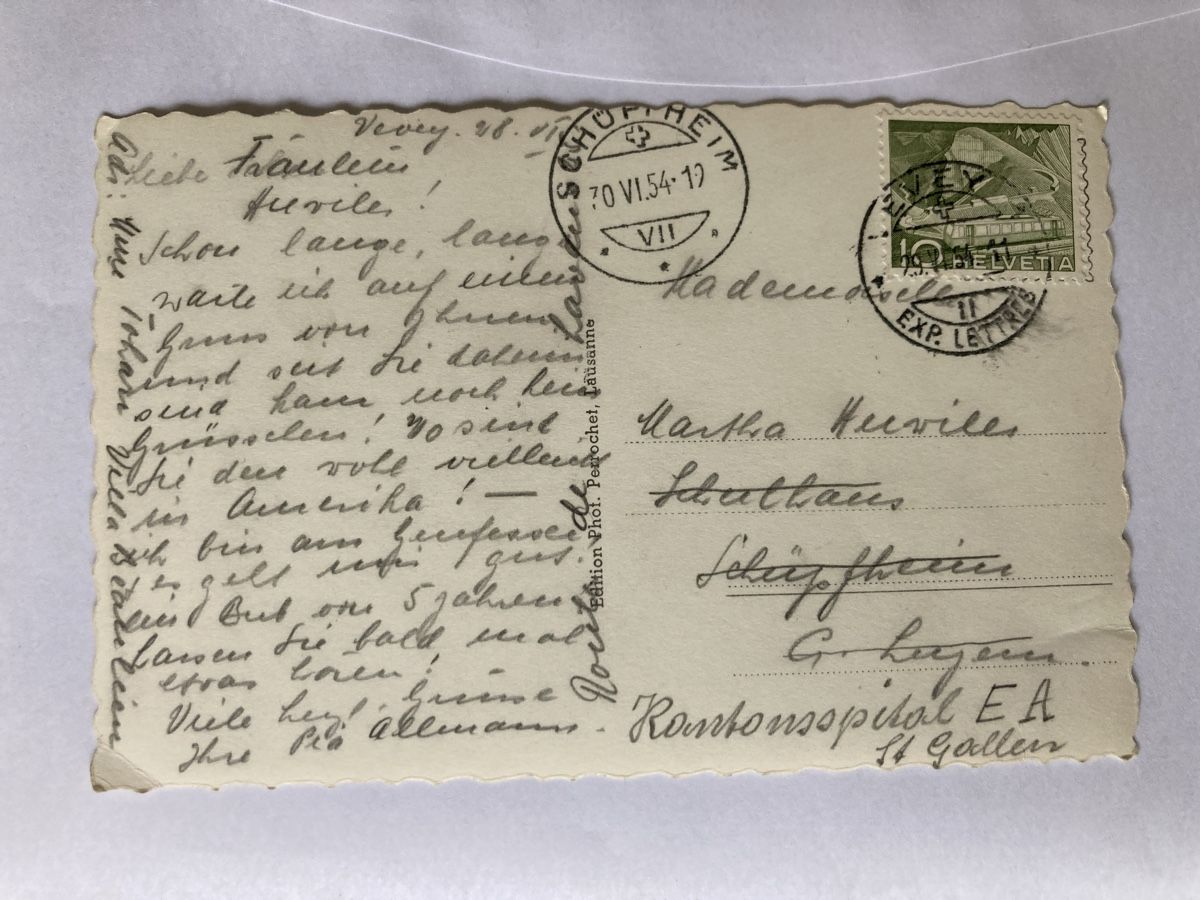 Vevey. 28. VI.
Liebe Fräulein
Huwiler!
Schon lange, lange
warte ich auf einen
Gruss von Ihnen
und seit Sie daheim
sind kam noch kein
Grüsslein! Wo sind
Sie den wohl vielleicht
in Amerika! —
ich bin am Genfersee
es geht mir gut.
ein Bub von 5 Jahren
Lassen Sie bald mal
etwas hören!
Viele herzl. Grüsse
Ihre Pia Allmann.
Adr: Johan Villa Beau
Route de
Edition Phot. Perrochet, Lausanne
SCHÜPFHEIM
30 VI.54·19
VII
VEVEY
29.VI.54-21
II
EXP. LETTRES
10 HELVETIA
Mademoiselle
Martha Huwiler
Schulhaus
Schüpfheim
Ct. Luzern.
Kantonsspital E A
St Gallen